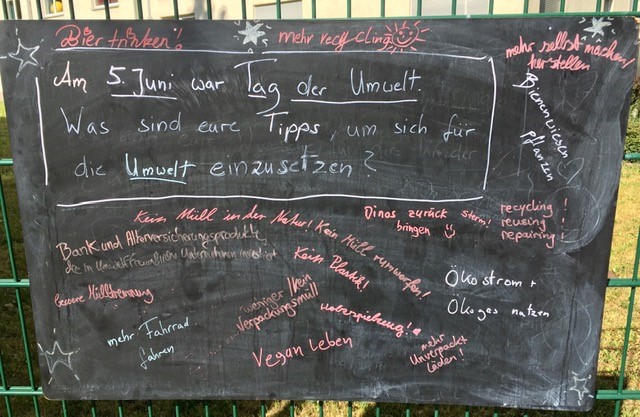 Bier trinken!
mehr recycling
mehr selbst machen/
herstellen
Am 5. Juni war Tag der Umwelt.
Was sind eure Tipps, um sich für
die Umwelt einzusetzen?
Bienenwiesen
pflanzen
Kein Müll in der Natur!
Dinos zurück
bringen
recycling!
reusing!
repairing!
Kein Müll rumwerfen!
Bank und Altersversicherungsprodukte,
die in umweltfreundliche Unternehmen investiert
Kein Plastik!
Ökostrom +
Ökogas nutzen
bessere Mülltrennung
weniger/kein
Verpackungsmüll
mehr Fahrrad
fahren
Vegan leben
mehr
Unverpackt
Läden!